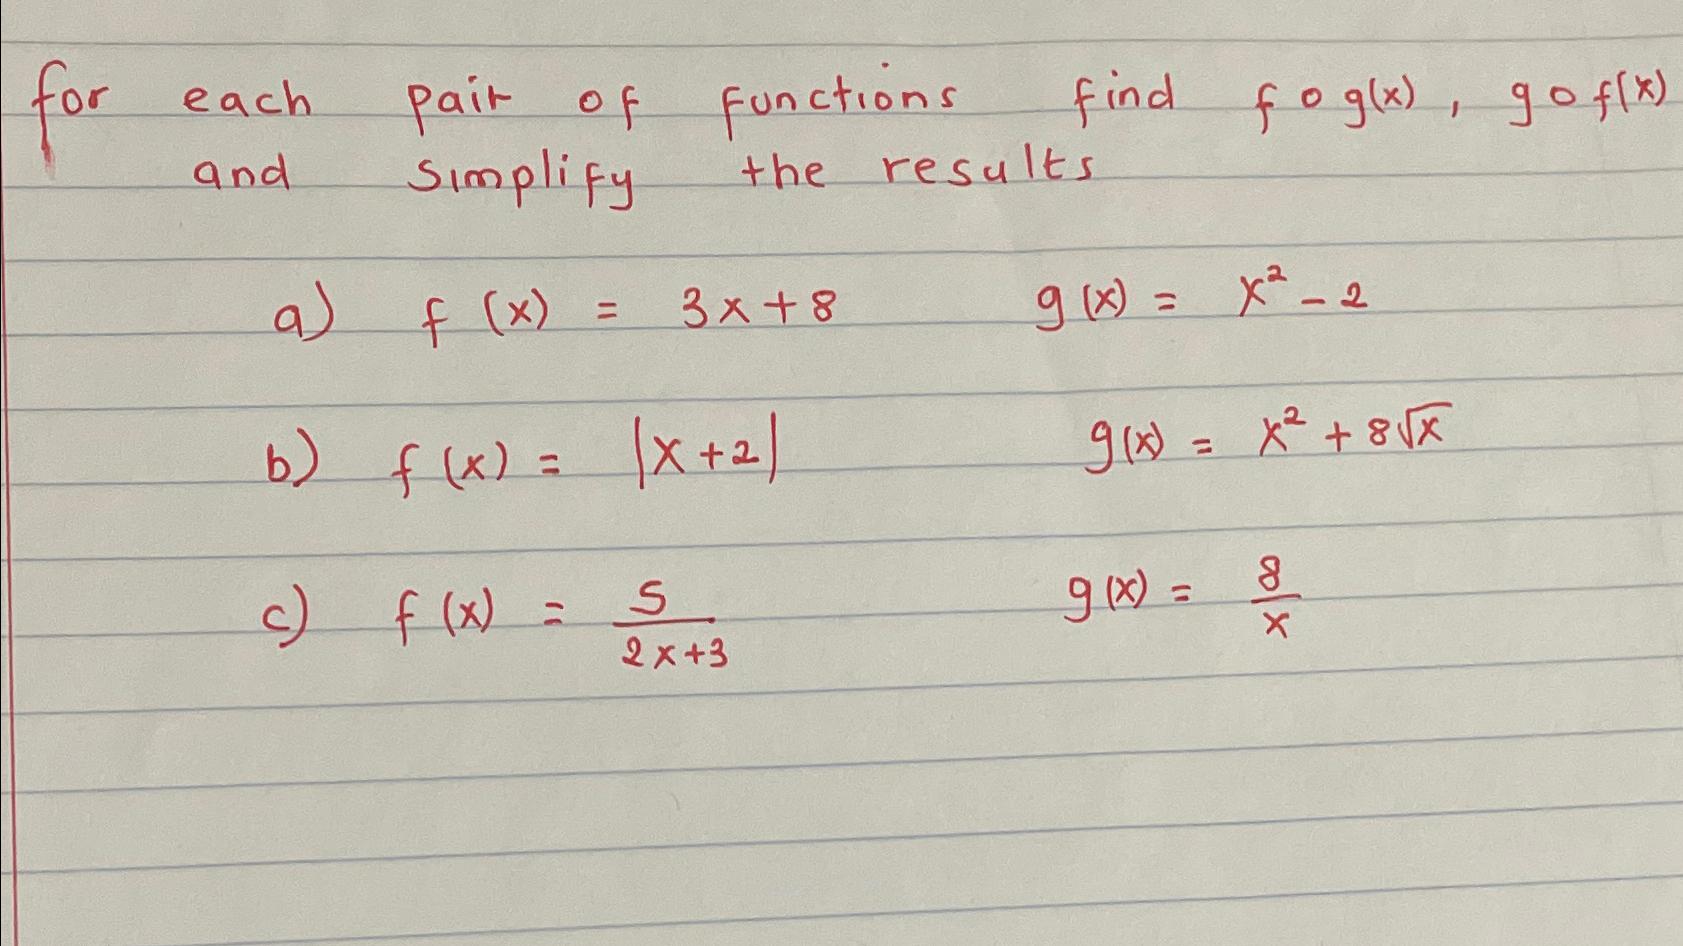 for each pair of functions find f o g(x) , g o f(x)
and simplify the results
a) f (x) = 3x + 8 g (x) = x² - 2
b) f (x) = |x + 2| g(x) = x² + 8√x
c) f (x) = 5/(2x+3) g (x) = 8/x